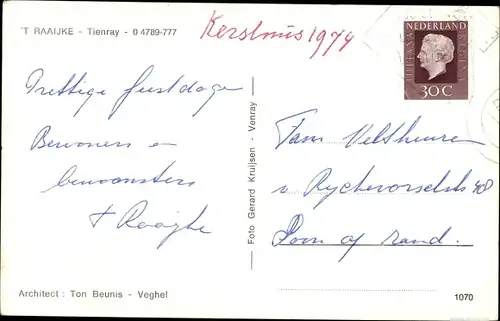 'T RAAIJKE - Tienray - 0 4789-777
Kerstmis 1974
NEDERLAND
JULIANA REGINA
30 C
Prettige feestdagen
Bewoners en
bewoonsters
't Raaijke
Foto Gerard Kruijsen - Venray
Fam Velthuizen
v Ryckevorselstr 48
Loon op Zand.
Architect : Ton Beunis - Veghel
1070